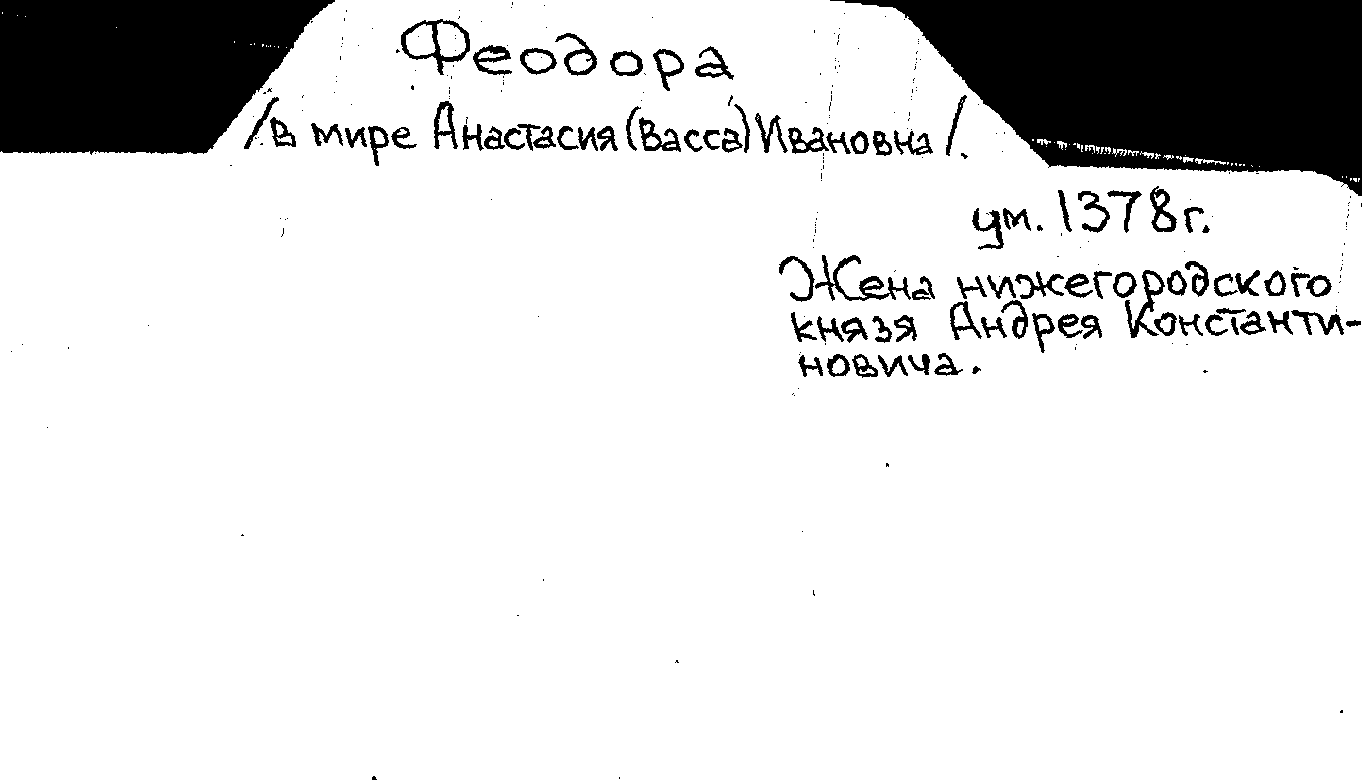 Феодора
/в мире Анастасия (Васса) Ивановна/.
ум. 1378 г.
Жена нижегородского
князя Андрея Константи-
новича.